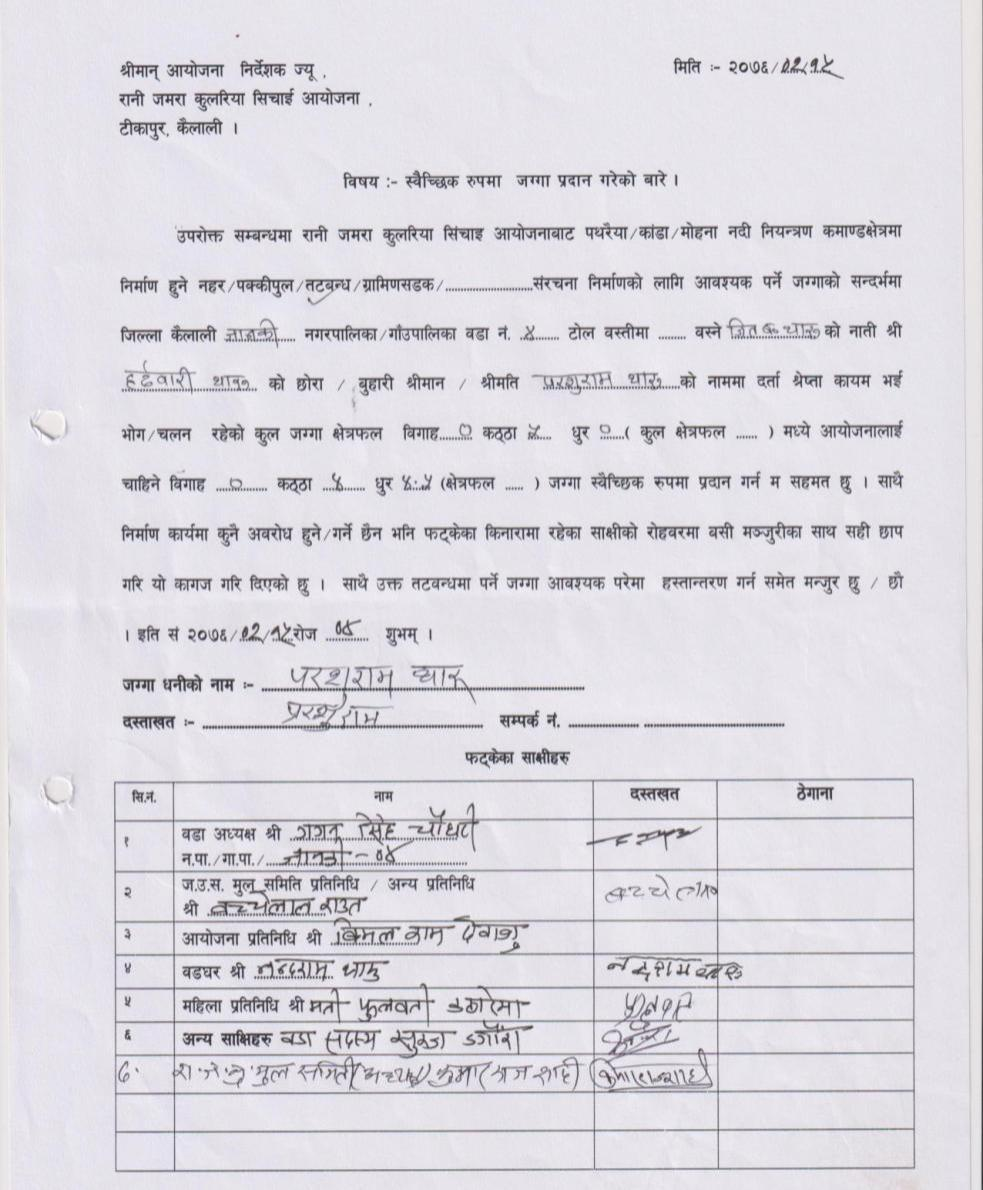 श्रीमान् आयोजना निर्देशक ज्यू , मिति :- २०७६/०२/१५
रानी जमरा कुलरिया सिचाई आयोजना ,
टीकापुर, कैलाली ।
विषय :- स्वैच्छिक रुपमा जग्गा प्रदान गरेको बारे ।
उपरोक्त सम्बन्धमा रानी जमरा कुलरिया सिंचाइ आयोजनाबाट पथरैया/कांडा/मोहना नदी नियन्त्रण कमाण्डक्षेत्रमा
निर्माण हुने नहर/पक्कीपुल/तटबन्ध/ग्रामिणसडक/..............................संरचना निर्माणको लागि आवश्यक पर्ने जग्गाको सन्दर्भमा
जिल्ला कैलाली जानकी...... नगरपालिका/गाँउपालिका वडा नं. ४....... टोल वस्तीमा ........ वस्ने थारु को नाती श्री
थारु को छोरा / बुहारी श्रीमान / श्रीमति परशुराम थारु को नाममा दर्ता श्रेप्ता कायम भई
भोग/चलन रहेको कुल जग्गा क्षेत्रफल विगाह....० कठ्ठा ५... धुर ०...( कुल क्षेत्रफल ...... ) मध्ये आयोजनालाई
चाहिने विगाह ....०....... कठ्ठा ...४...... धुर ४.५ (क्षेत्रफल ..... ) जग्गा स्वैच्छिक रुपमा प्रदान गर्न म सहमत छु । साथै
निर्माण कार्यमा कुनै अवरोध हुने/गर्ने छैन भनि फट्केका किनारामा रहेका साक्षीको रोहवरमा बसी मञ्जुरीका साथ सही छाप
गरि यो कागज गरि दिएको छु । साथै उक्त तटबन्धमा पर्ने जग्गा आवश्यक परेमा हस्तान्तरण गर्न समेत मन्जुर छु / छौ
। इति सं २०७६/०२/१५ रोज ०४ शुभम् ।
जग्गा धनीको नाम :- परशुराम थारु
दस्ताखत :- परशुराम सम्पर्क नं. ................. ..................................
फट्केका साक्षीहरु
सि.नं. नाम दस्तखत ठेगाना
१ वडा अध्यक्ष श्री गगन सिंह चौधरी
न.पा./गा.पा./ जानकी - ०४
२ ज.उ.स. मुल समिति प्रतिनिधि / अन्य प्रतिनिधि
श्री बच्चेलाल राउत बच्चेलाल
३ आयोजना प्रतिनिधि श्री बिमल राम
४ वडघर श्री नन्दराम थारु नन्दराम थारु
५ महिला प्रतिनिधि श्री मती फुलवती फुलवती
६ अन्य साक्षिहरु वडा सदस्य डगौरा
मुल समिति